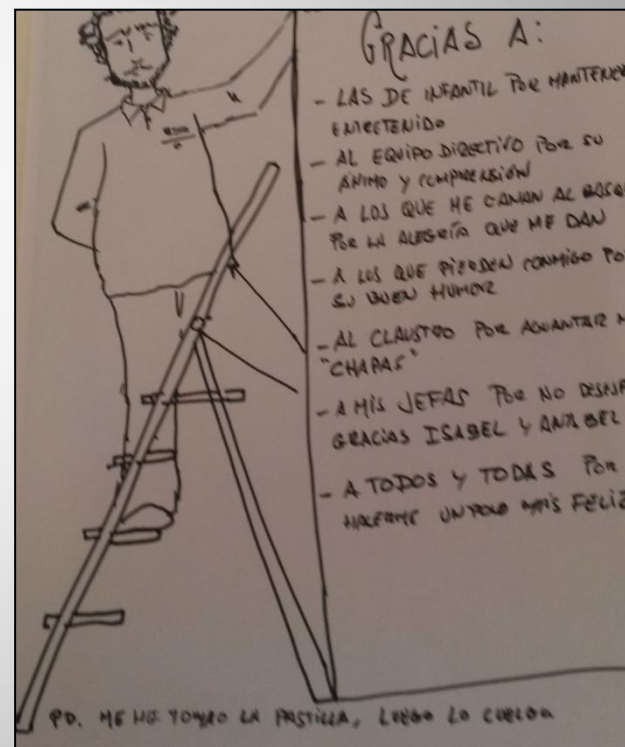 GRACIAS A:
- LAS DE INFANTIL POR
ENTRETENIDO
- AL EQUIPO DIRECTIVO POR SU
ÁNIMO Y COMPRENSIÓN
- A LOS QUE ME GANAN AL
POR LA ALEGRÍA QUE ME DAN
- A LOS QUE PIERDEN CONMIGO POR
SU BUEN HUMOR
- AL CLAUSTRO POR AGUANTAR
"CHAPAS"
- A MIS JEFAS POR NO
GRACIAS ISABEL Y ANABEL
- A TODOS Y TODAS POR
HACERME UN POCO MÁS FELIZ
PD. ME HE TOMADO LA PASTILLA, LUEGO LO CUELGA